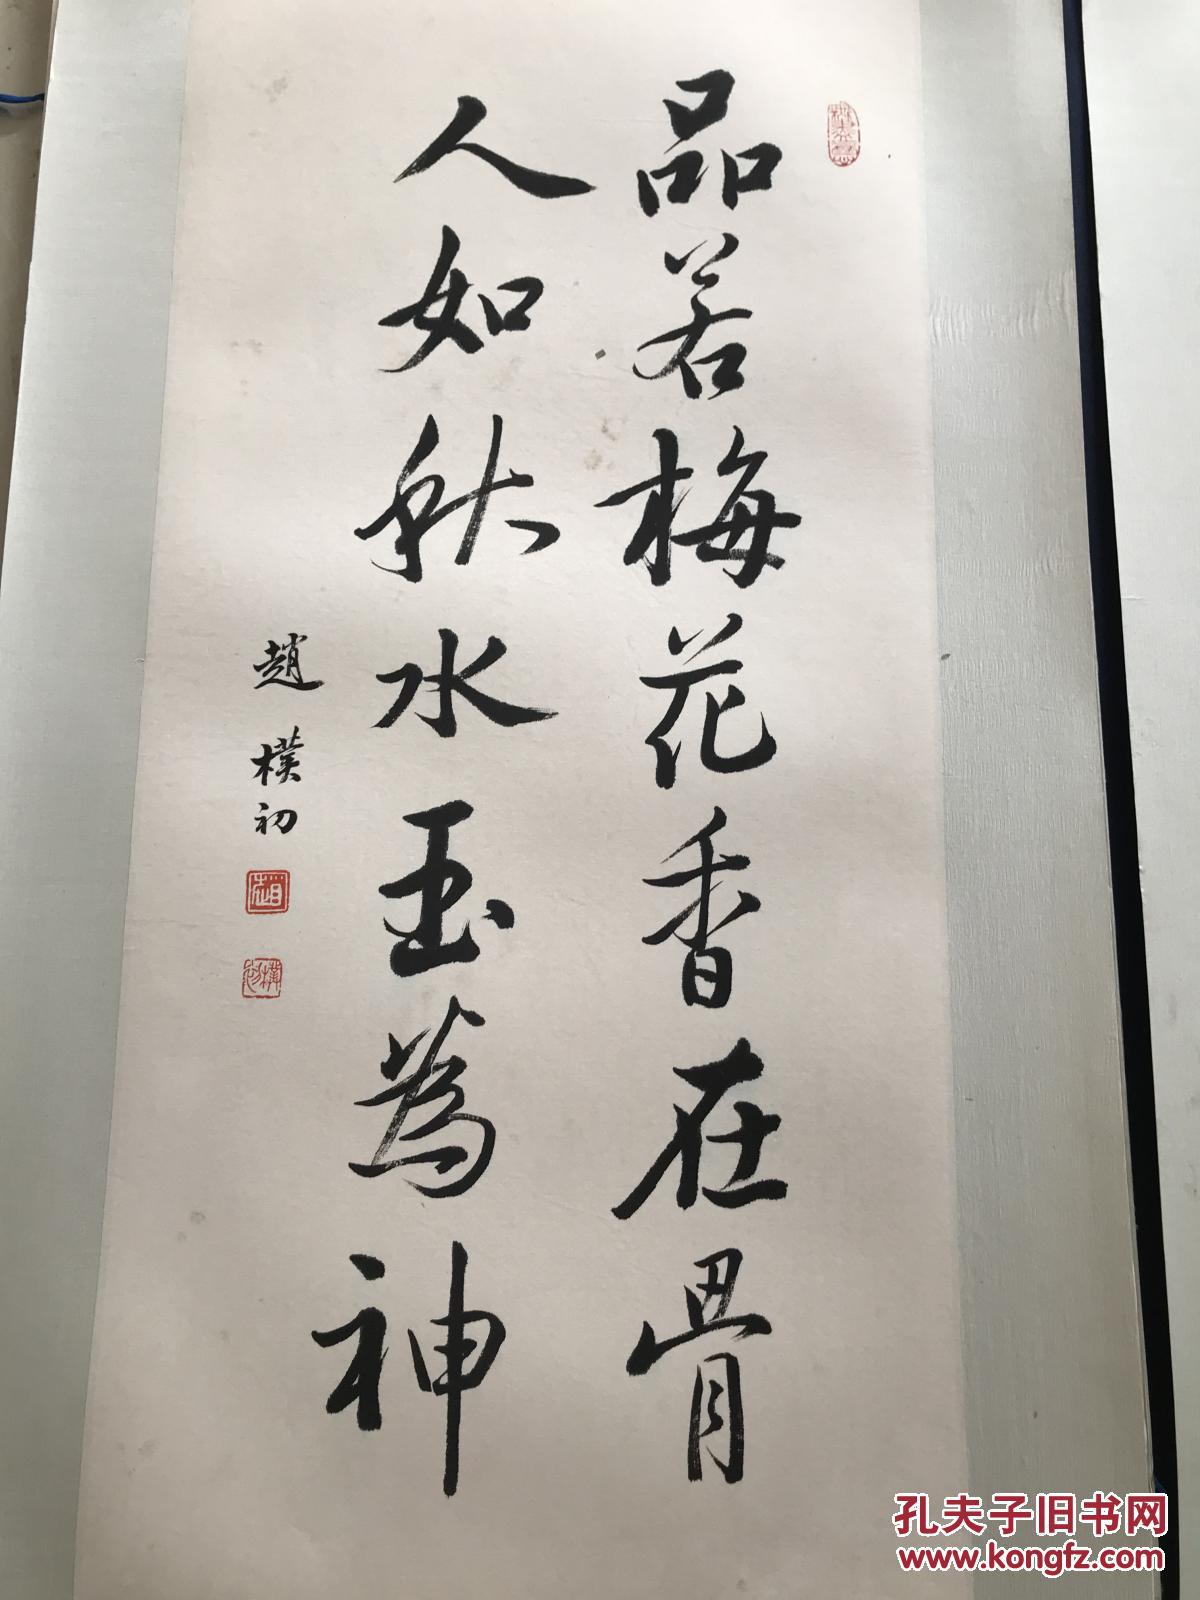 品若梅花香在骨
人如秋水玉為神
趙樸初
趙
樸初
孔夫子旧书网
www.kongfz.com